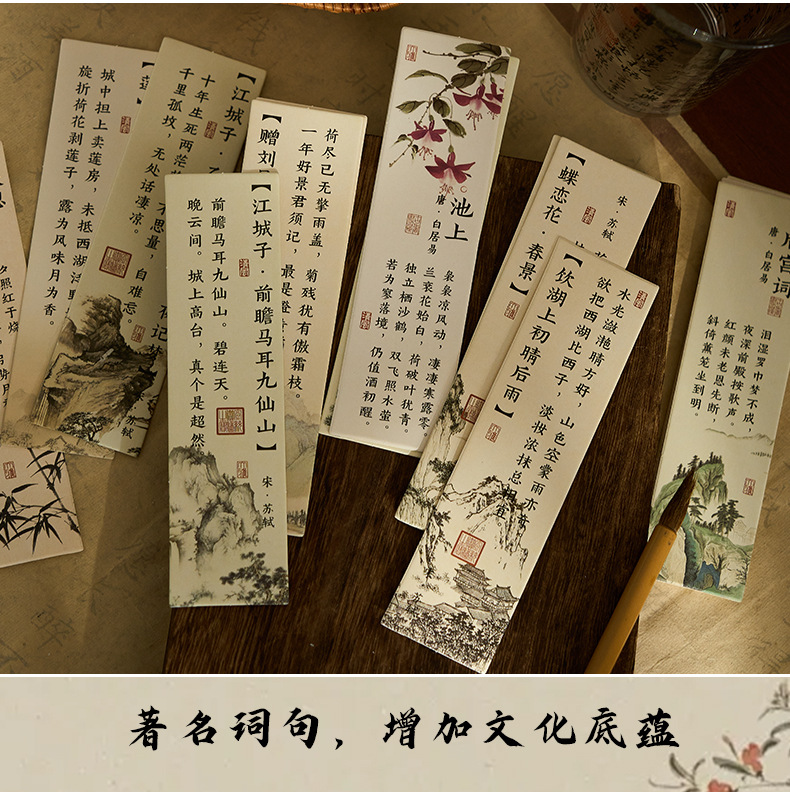 夕照红于烧
城中担上卖莲房，未抵西湖泛野
旋折荷花剥莲子，露为风味月为香。
【江城子·
十年生死两茫
千里孤坟，无处话凄凉。
不思量，自难忘。
夜记梦
宋·苏轼
【江城子·前瞻马耳九仙山】
宋·苏轼
前瞻马耳九仙山。碧连天。
晚云间。城上高台，真个是超然
【赠刘
荷尽已无擎雨盖，菊残犹有傲霜枝。
一年好景君须记，最是橙
池上
唐·白居易
袅袅凉风动，凄凄寒露零。
兰衰花始白，荷破叶犹青。
独立栖沙鹤，双飞照水萤。
若为寥落境，仍值酒初醒。
【蝶恋花·春景】
宋·苏轼
【饮湖上初晴后雨】
水光潋滟晴方好，山色空蒙雨亦奇
欲把西湖比西子，淡妆浓抹总相宜
后宫词
唐·白居易
泪湿罗巾梦不成，
夜深前殿按歌声。
红颜未老恩先断，
斜倚薰笼坐到明。
著名词句，增加文化底蕴